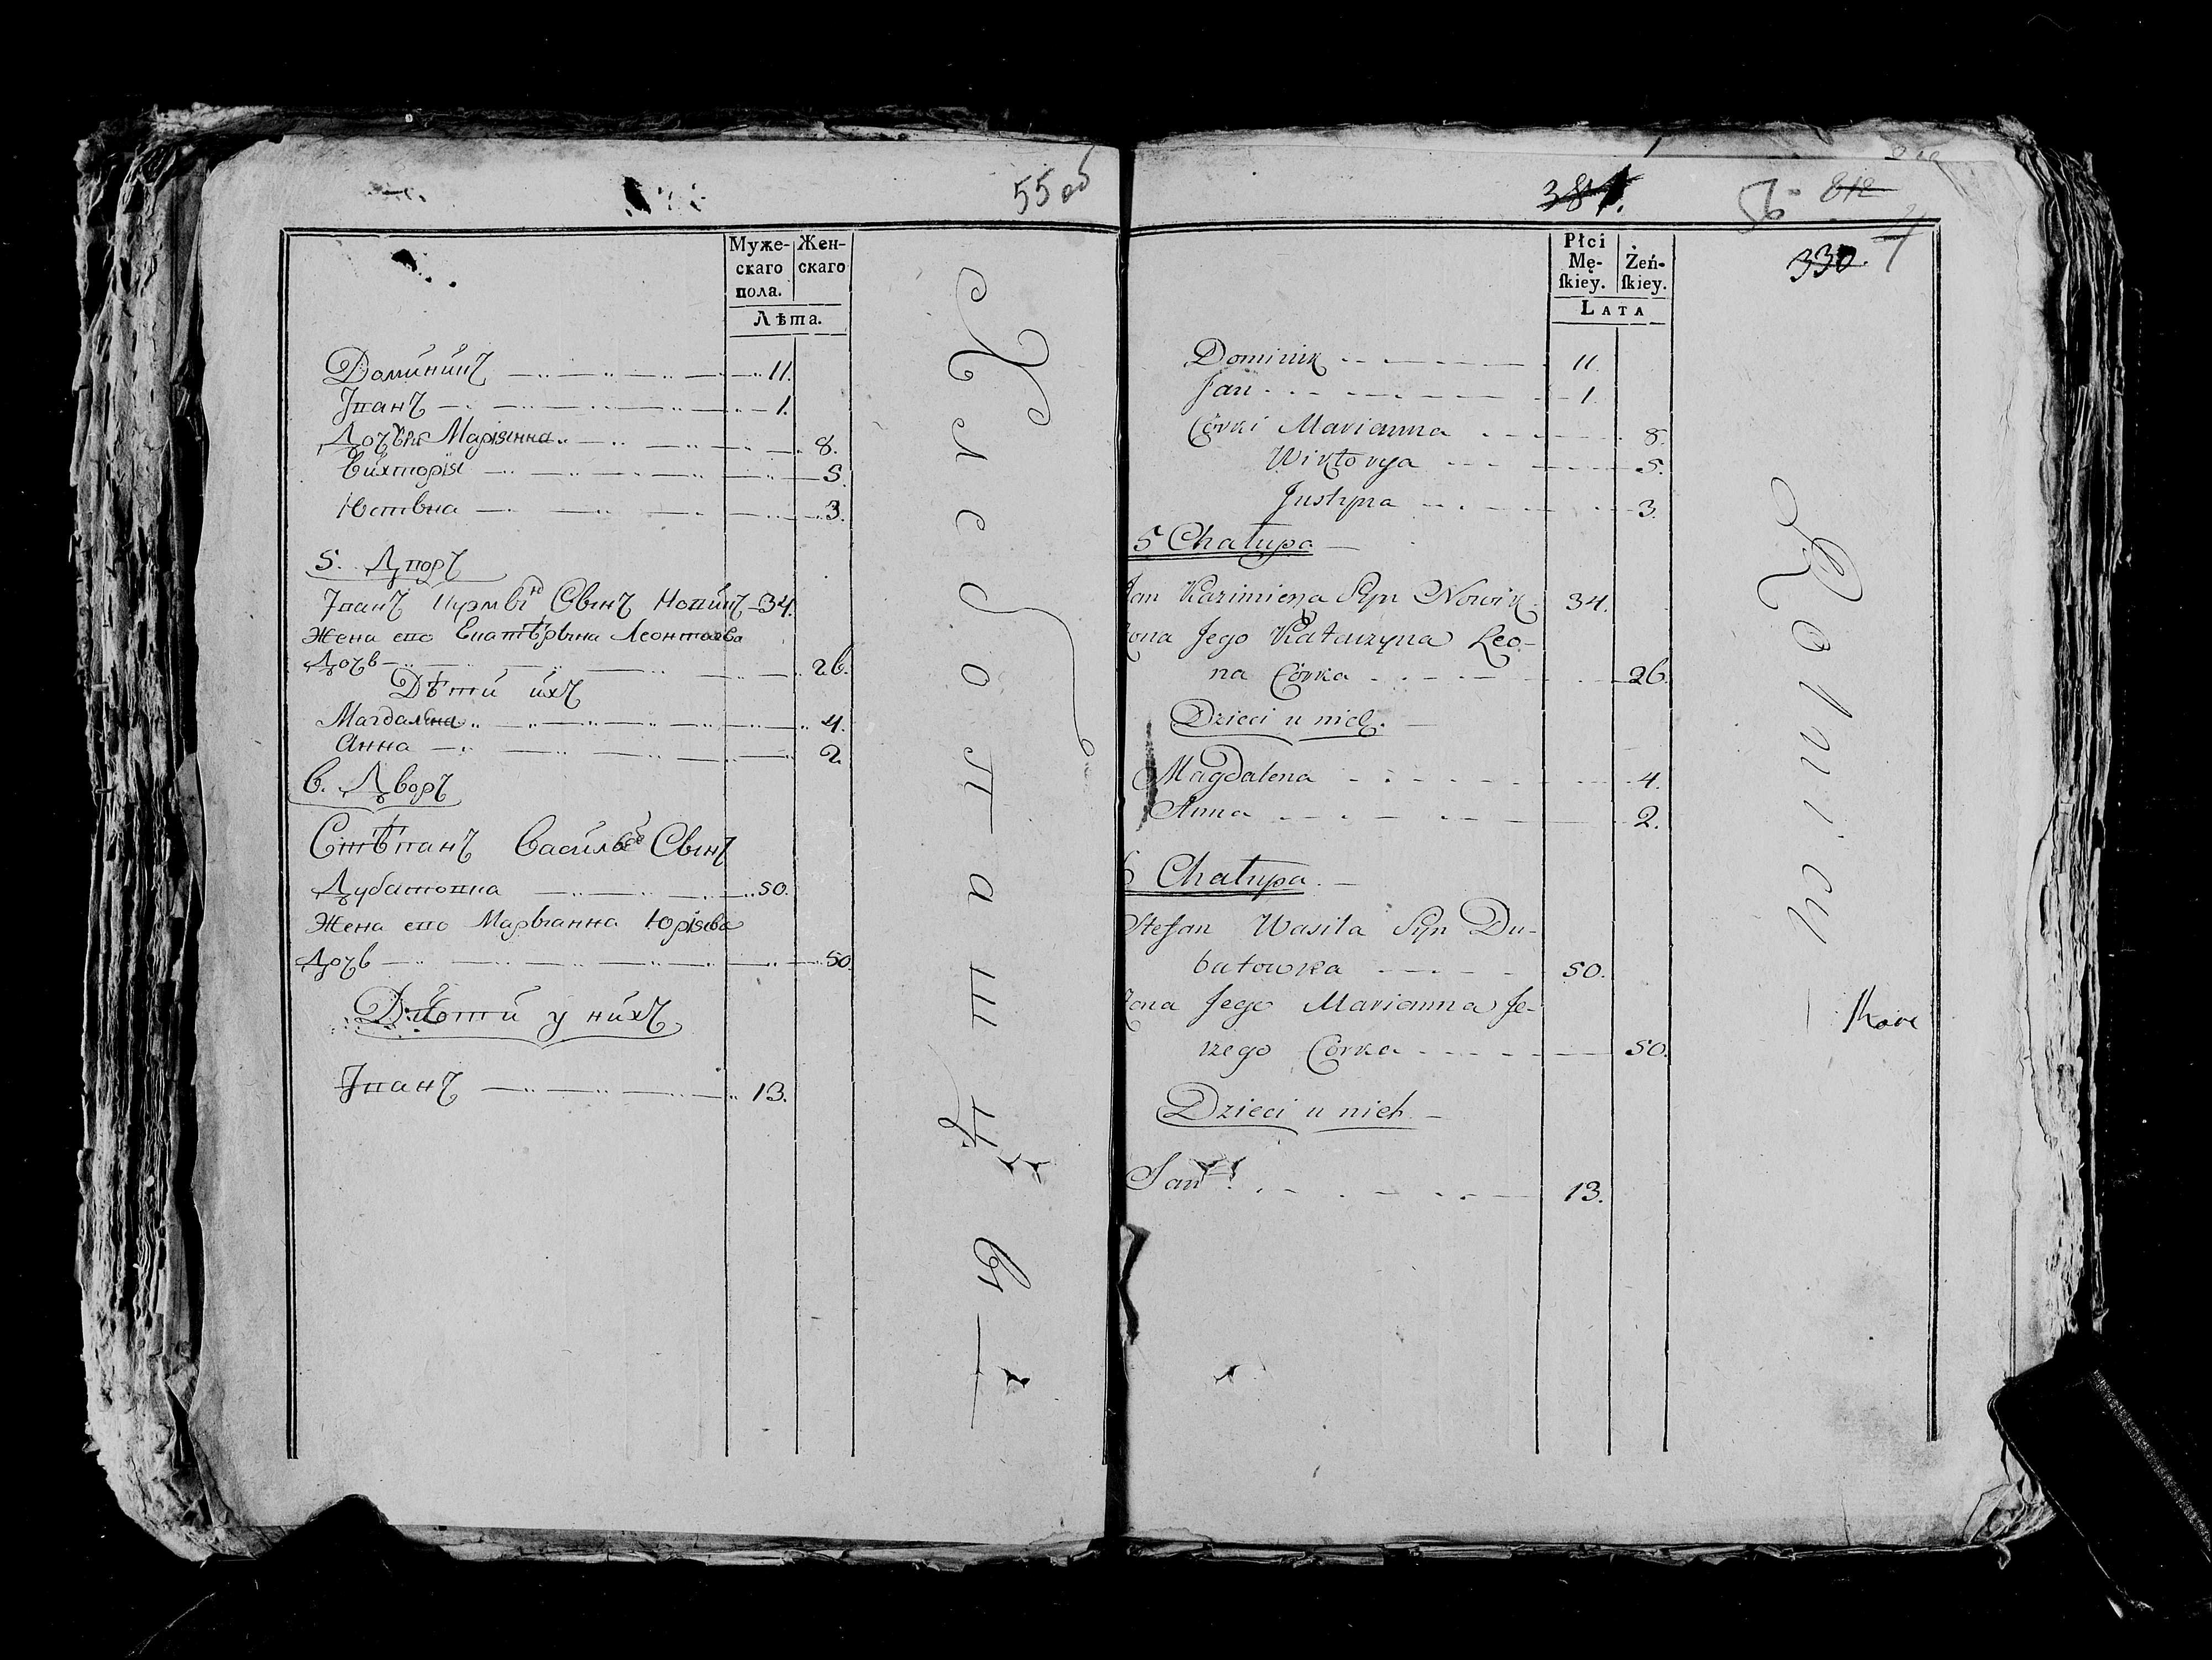 55 об
Муже- Жен-
скаго скаго
пола.
Лѣта.
Доминикъ 11.
Іванъ 1.
Дочки Марiянна 8.
Викторiя 5.
Юстына 3.
5. Дворъ
Іванъ Сынъ Новикъ 34.
Жена его Екатѣрына Леонтьева
Дочь 26.
Дѣти ихъ
Магдалѣна 4.
Анна 2.
6. Дворъ
Стѣпанъ Васильевъ Сынъ
Дубатовка 50.
Жена его Марыанна Юрiева
Дочь 50.
Дѣти у нихъ
Іванъ 13.
Хлебопашцы
381.
56 812
330.
Płci
Mę- Żeń-
ſkiey. ſkiey.
LATA
Dominik 11.
Jan 1
Córki Marianna 8.
Wiktorya 5.
Justyna 3
5 Chałupa
Jan Kazimierza Syn Nowik 34.
Żona Jego Katarzyna Leo-
na Córka 26.
Dzieci u nich.
Magdalena 4.
Anna 2.
6 Chałupa
Stefan Wasila Syn Du-
batowka 50.
Żona Jego Marianna Je-
rzego Córka 50.
Dzieci u nich
Jan 13.
Rolnicy